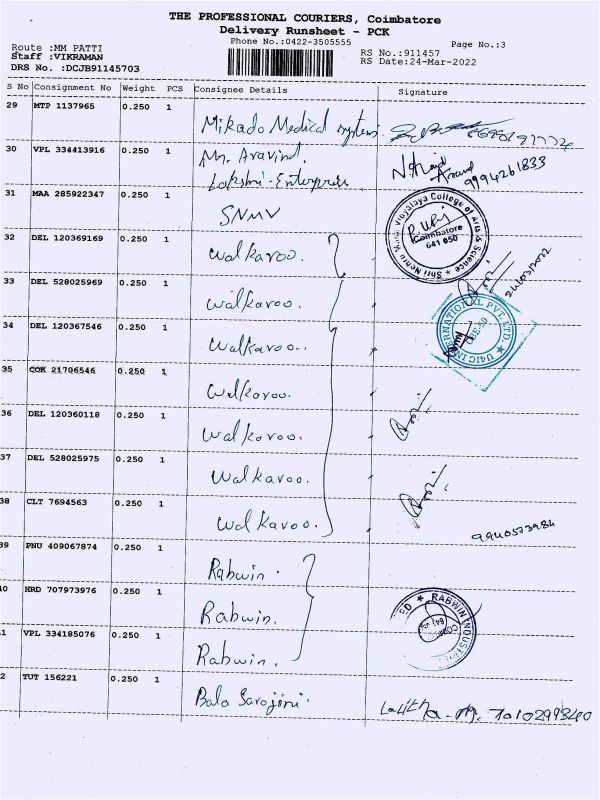 THE PROFESSIONAL COURIERS, Coimbatore
Delivery Runsheet - PCK
Phone No.:0422-3505555
Page No.:3
Route :MM PATTI
Staff :VIKRAMAN
DRS No. :DCJB91145703
RS No.:911457
RS Date:24-Mar-2022
S No Consignment No Weight PCS Consignee Details Signature
29 MTP 1137965 0.250 1 Mikado Medical systems
30 VPL 334413916 0.250 1 Mr. Aravind.
Lakshmi-Enterprises 9994261833
31 MAA 285922347 0.250 1 SNMV
Shri Nehru Maha Vidyalaya College of Arts & Science
Coimbatore
641 050
32 DEL 120369169 0.250 1 Walkaroo.
33 DEL 528025969 0.250 1 Walkaroo. 24/03/2022
34 DEL 120367546 0.250 1 Walkaroo..
INTERNATIONAL PVT. LTD.
35 COK 21706546 0.250 1 Walkaroo.
36 DEL 120360118 0.250 1 Walkaroo.
37 DEL 528025975 0.250 1 Walkaroo.
38 CLT 7694563 0.250 1 Walkaroo.
9940573984
39 PNU 409067874 0.250 1 Rabwin.
40 HRD 707973976 0.250 1 Rabwin.
RABWIN INDUSTRIES
41 VPL 334185076 0.250 1 Rabwin.
2 TUT 156221 0.250 1 Bala Sarojini. Lalitha